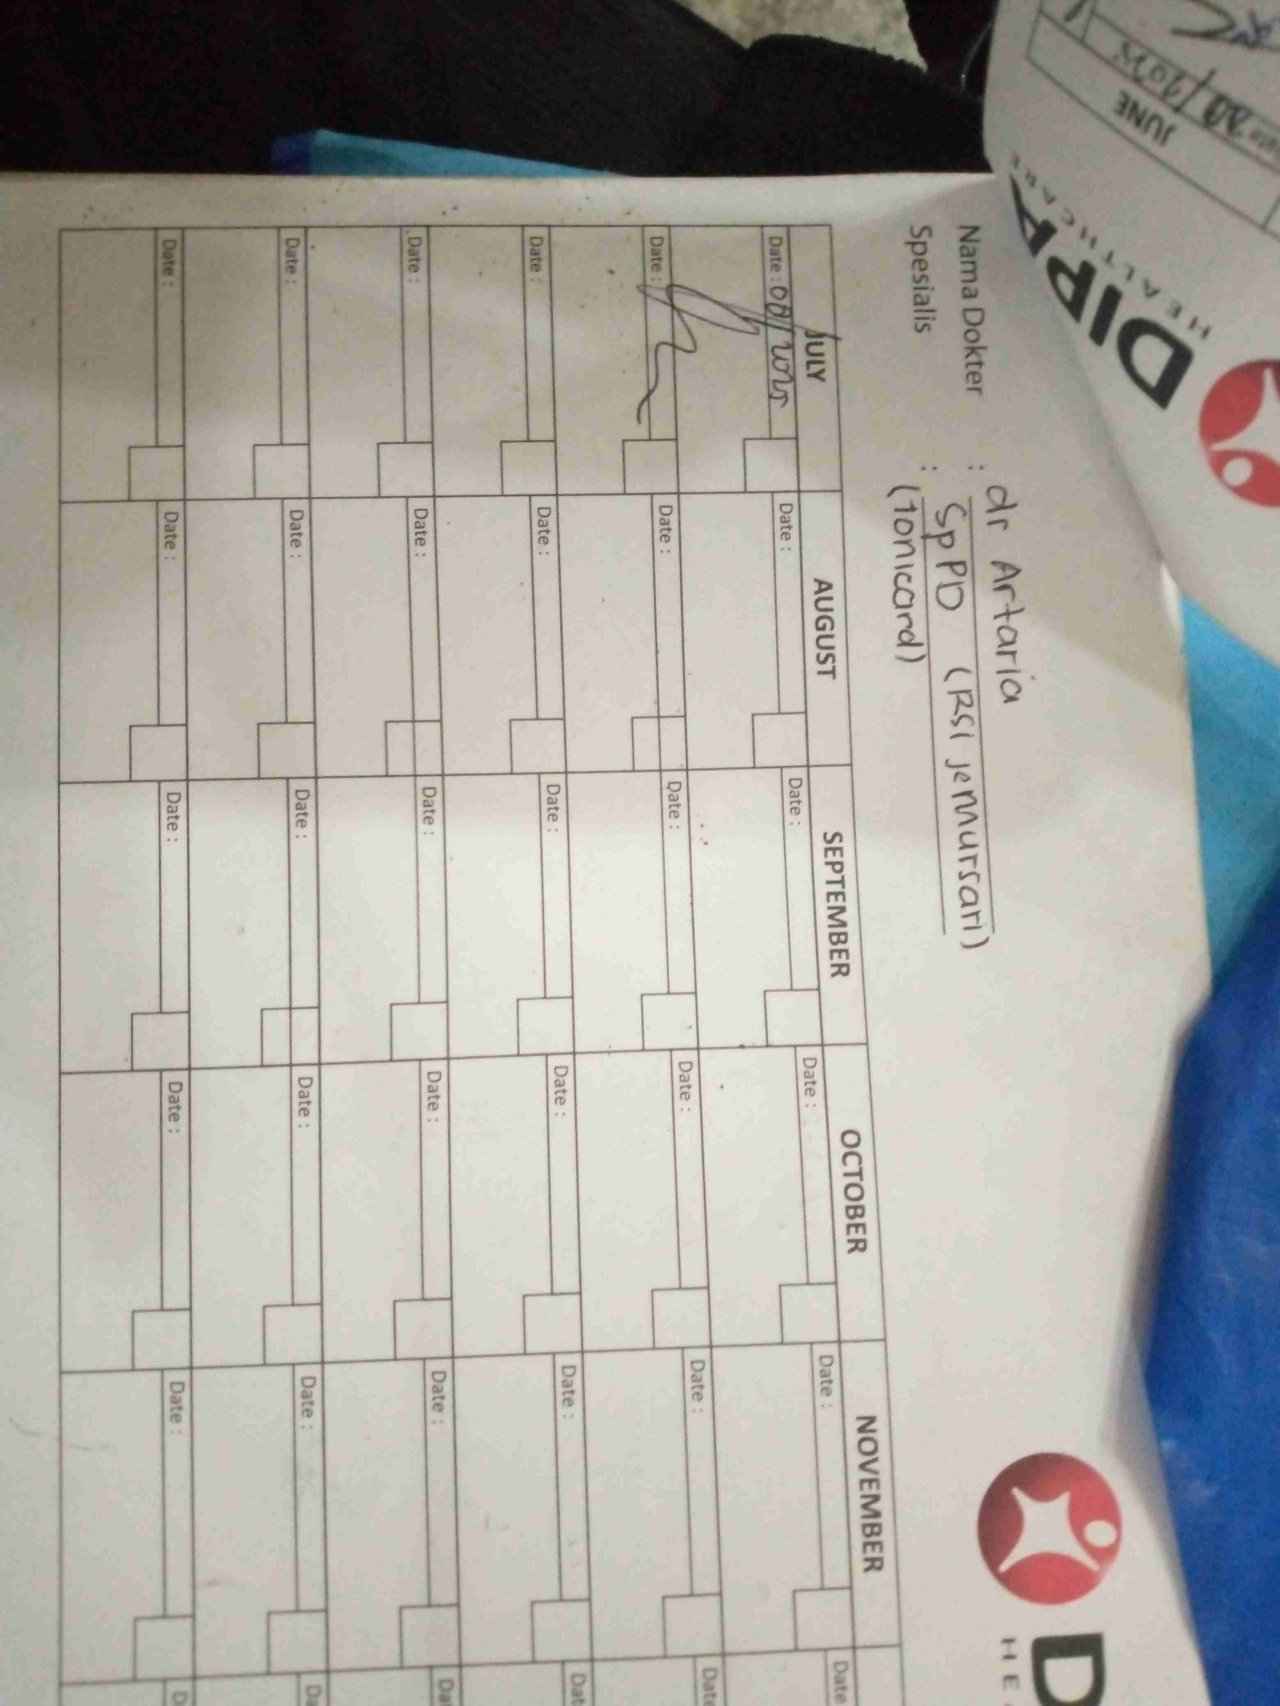 JUNE
DIPA
HEALTHCARE
Nama Dokter : dr Artaria
Spesialis : SpPD (RSI jemursari)
(Tonicard)
D
HEA
JULY AUGUST SEPTEMBER OCTOBER NOVEMBER
Date : Date : Date : Date : Date : Date
Date : Date : Date : Date : Date : Date
Date : Date : Date : Date : Date : Dat
Date : Date : Date : Date : Date : Dat
Date : Date : Date : Date : Date : Da
Date : Date : Date : Date : Date : D